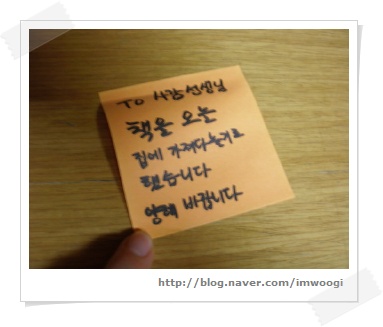 TO 사감선생님
책을 오는
집에 가져다놓기로
했습니다
양해 바랍니다
http://blog.naver.com/imwoogi